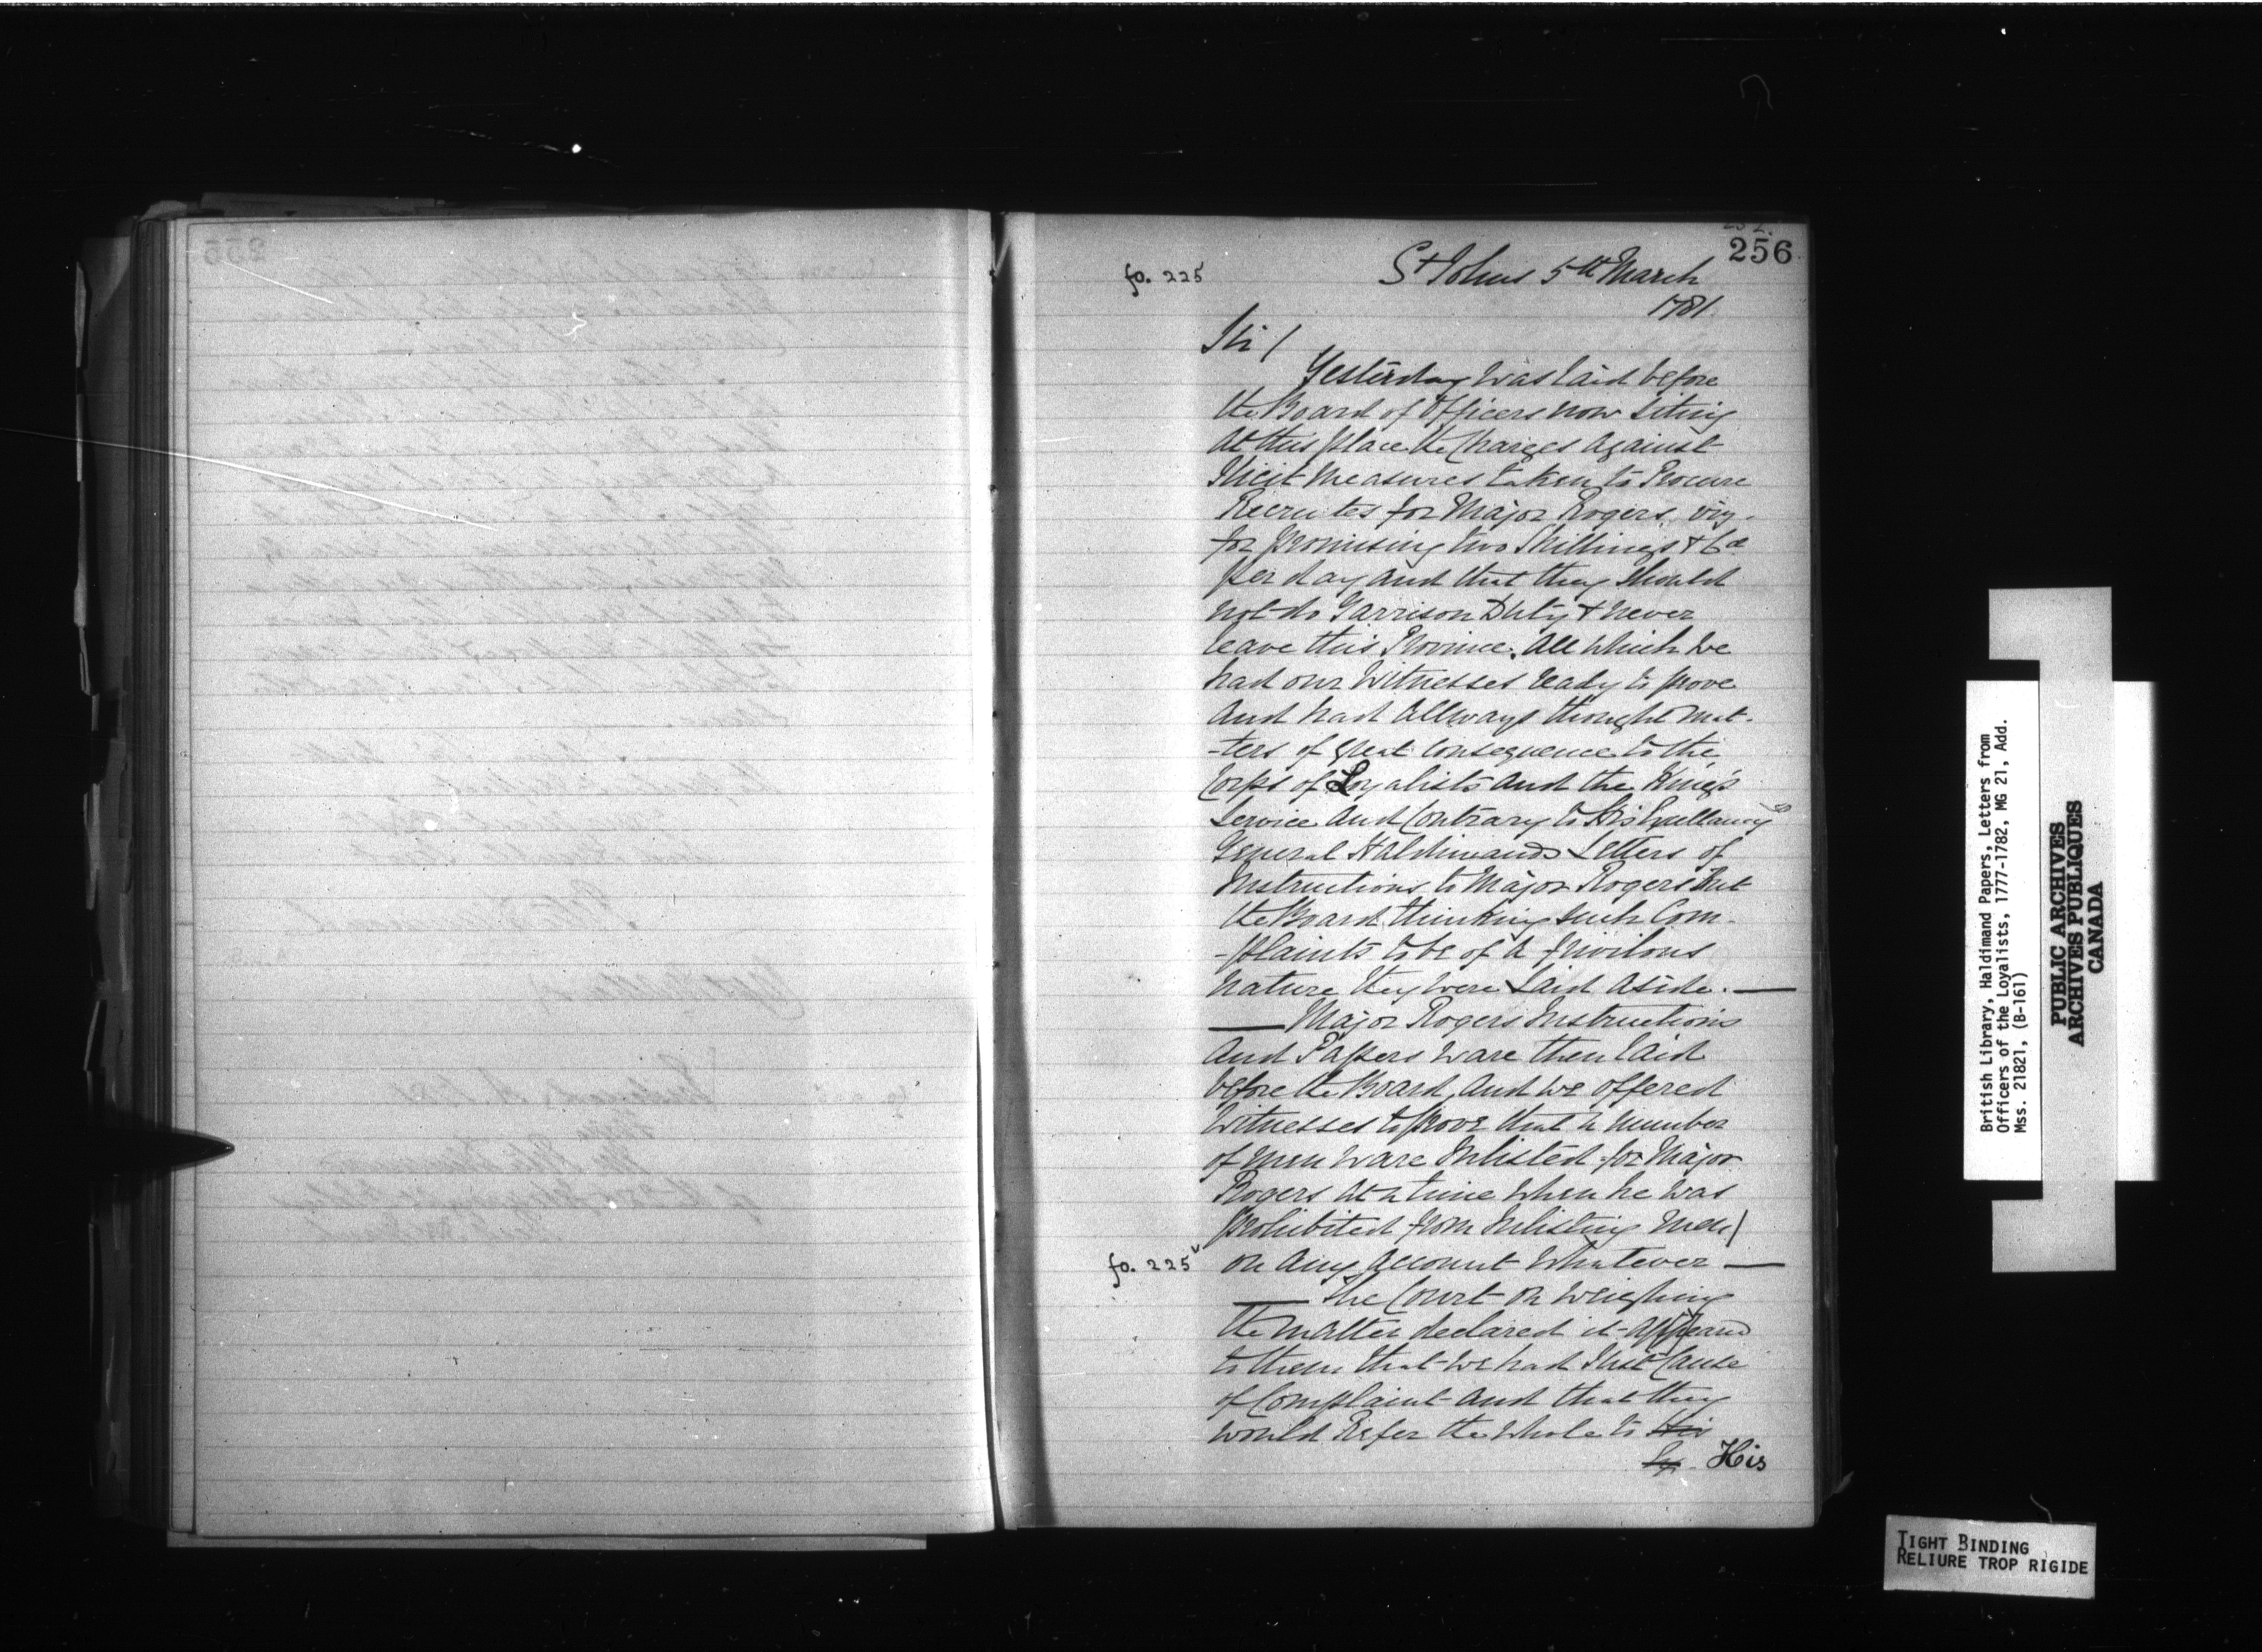 256
fo. 225
St Johns 5th March
1781
Sir /
Yesterday was laid before
the Board of Officers now Siting
At this place the Charges Against
Illicit Measures taken to Procure
Recrutes for Major Rogers, viz.
for promising two Shillings & 6d
per day and that they Should
not do Garrison Duty & never
leave this Province. All which we
had our Witnesses ready to prove
And had Allways thought mat-
-ters of great Consequence to the
Corps of Loyalists and the King's
Service And Contrary to His Excellancys
General Haldimands Letters of
Instructions to Major Rogers but
the Board thinking such Com-
-plaints to be of a frivilous
nature they were Laid Aside. —
— Major Rogers Instructions
And Papers ware then laid
before the Board, And we offered
Witnesses to prove that a number
of men ware Inlisted for Major
Rogers At a time when he was
prohibited from Inlisting men /
fo. 225v
on Any Account Whatever —
— The Court on Weighing
the matter declared it Appeard
to them that we had Just Cause
of Complaint And that they
would Refer the Whole to His
Ex. His
British Library, Haldimand Papers, Letters from
Officers of the Loyalists, 1777-1782, MG 21, Add.
Mss. 21821, (B-161)
PUBLIC ARCHIVES
ARCHIVES PUBLIQUES
CANADA
TIGHT BINDING
RELIURE TROP RIGIDE